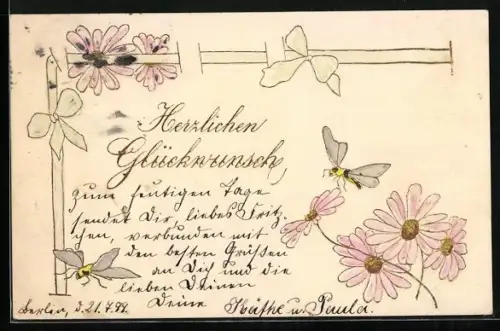 Herzlichen
Glückwunsch
zum heutigen Tage
sendet Dir, liebes Fritz-
chen, verbunden mit
den besten Grüßen
an Dich und die
lieben Deinen
Deine Käthe u. Paula.
Berlin, d. 21.7.99.